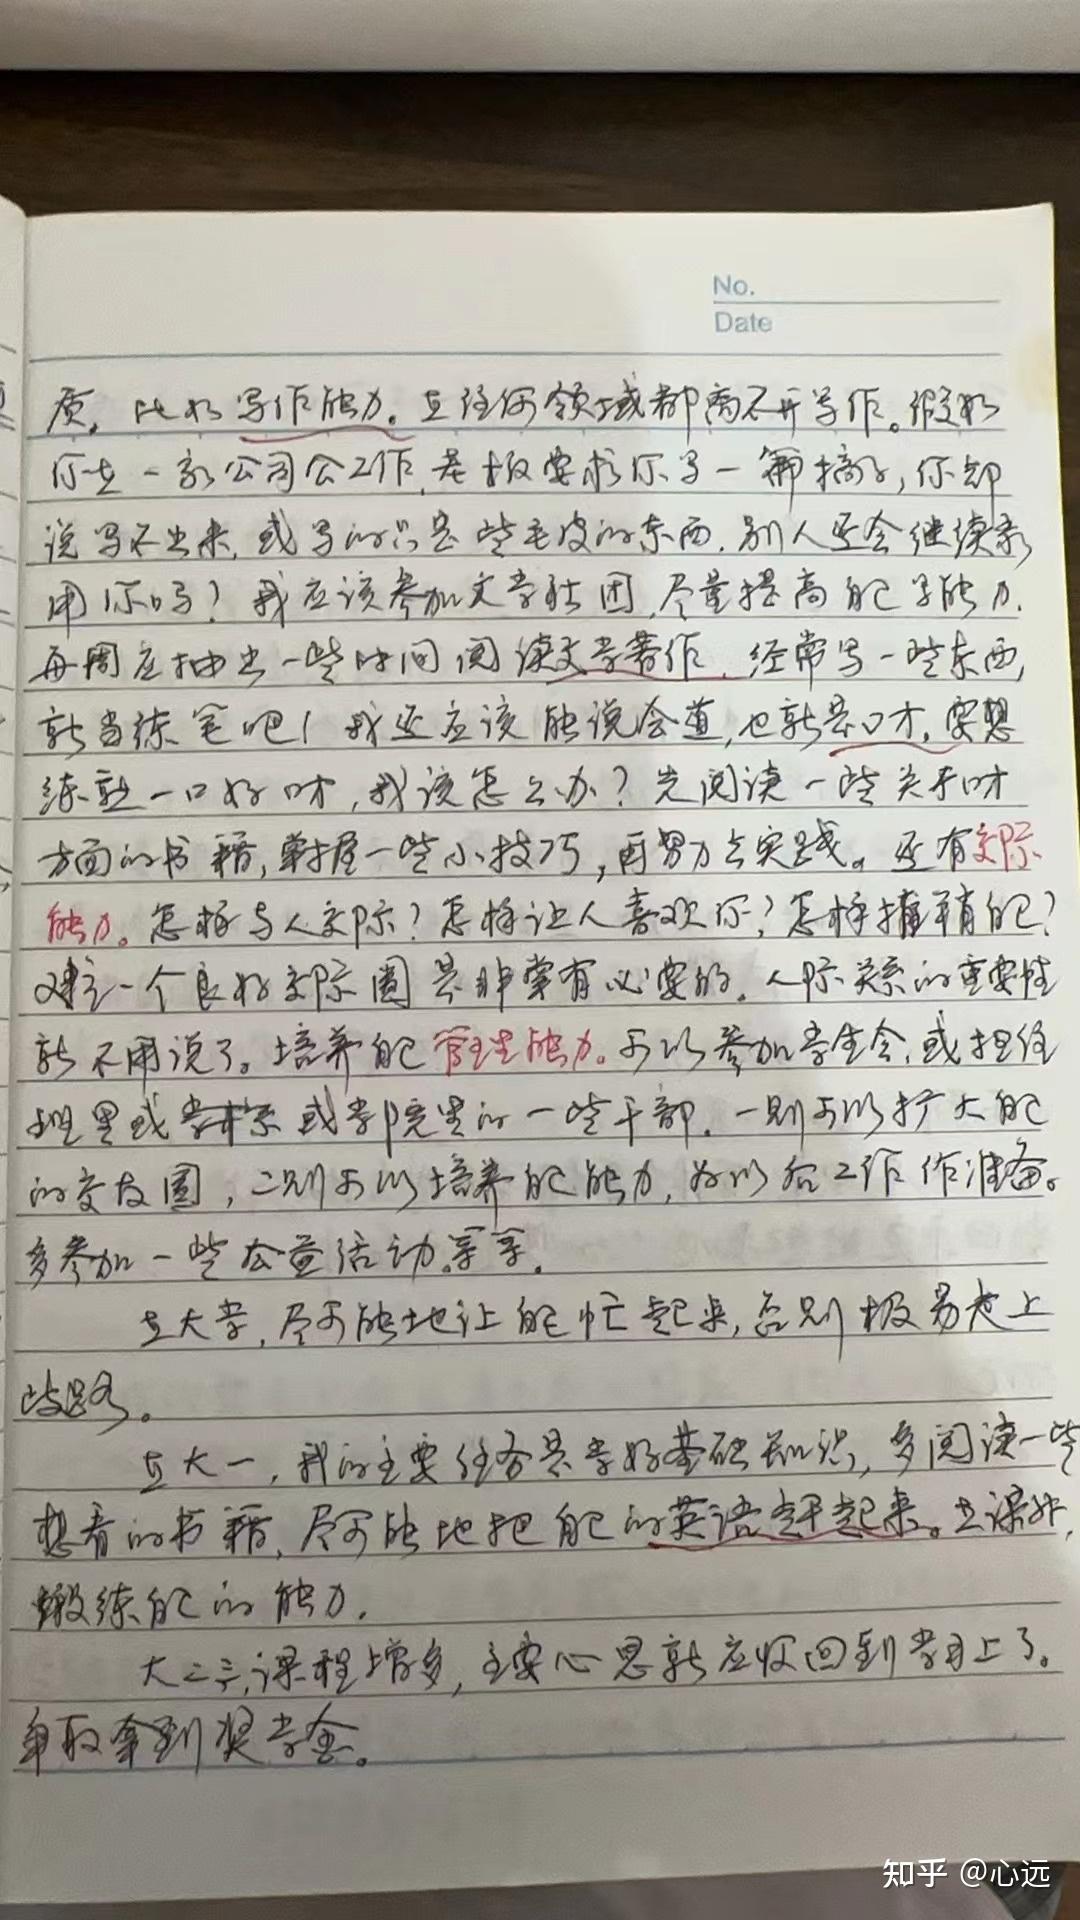 No.
Date
质。比如写作能力。在任何领域都离不开写作。假如
你在一家公司公工作,老板要求你写一篇稿子,你却
说写不出来,或写的只是些毛皮的东西,别人还会继续录
用你吗?我应该参加文学社团,尽量提高自己写能力.
每周应抽出一些时间阅读文学著作,经常写一些东西,
就当练笔吧!我还应该能说会道,也就是口才。要想
练就一口好口才,我该怎么办?先阅读一些关于口才
方面的书籍,掌握一些小技巧,再努力去实践。还有交际
能力。怎样与人交际?怎样让人喜欢你?怎样推销自己?
建立一个良好交际圈是非常有必要的。人际关系的重要性
就不用说了。培养自己管理能力。可以参加学生会,或担任
班里或学院里的一些干部。一则可以扩大自己
的交友圈,二则可以培养自己能力,为以后工作作准备。
多参加一些公益活动.等等.
在大学,尽可能地让自己忙起来,否则极易走上
歧路。
在大一,我的主要任务是学好基础知识,多阅读一些
想看的书籍,尽可能地把自己的英语赶起来。在课外,
锻练自己的能力.
大二三,课程增多,主要心思就应收回到学习上了。
争取拿到奖学金。
知乎 @心远